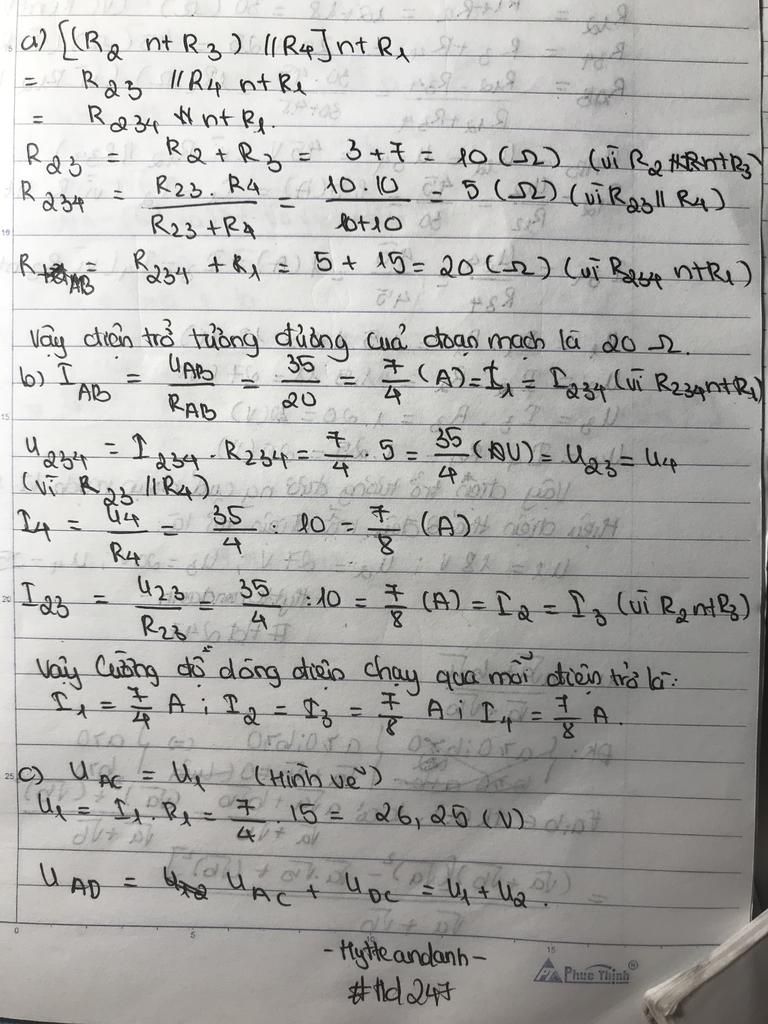 a) [(R2 nt R3) // R4] nt R1
= R23 // R4 nt R1
= R234 nt R1.
R23 = R2 + R3 = 3 + 7 = 10 (Ω) (vì R2 nt R3)
R234 = R23 . R4 / R23 + R4 = 10 . 10 / 10 + 10 = 5 (Ω) (vì R23 // R4)
RAB = R234 + R1 = 5 + 15 = 20 (Ω) (vì R234 nt R1)
Vậy điện trở tương đương của đoạn mạch là 20 Ω.
b) IAB = UAB / RAB = 35 / 20 = 7/4 (A) = I1 = I234 (vì R234 nt R1)
U234 = I234 . R234 = 7/4 . 5 = 35/4 (V) = U23 = U4
(vì R23 // R4)
I4 = U4 / R4 = 35/4 : 10 = 7/8 (A)
I23 = U23 / R23 = 35/4 : 10 = 7/8 (A) = I2 = I3 (vì R2 nt R3)
Vậy cường độ dòng điện chạy qua mỗi điện trở là:
I1 = 7/4 A ; I2 = I3 = 7/8 A ; I4 = 7/8 A.
c) UAC = U1 (Hình vẽ)
U1 = I1 . R1 = 7/4 . 15 = 26,25 (V)
UAD = UAC + UDC = U1 + U2.
- Hytteandanh -
#Hd247
Phuc Thinh®